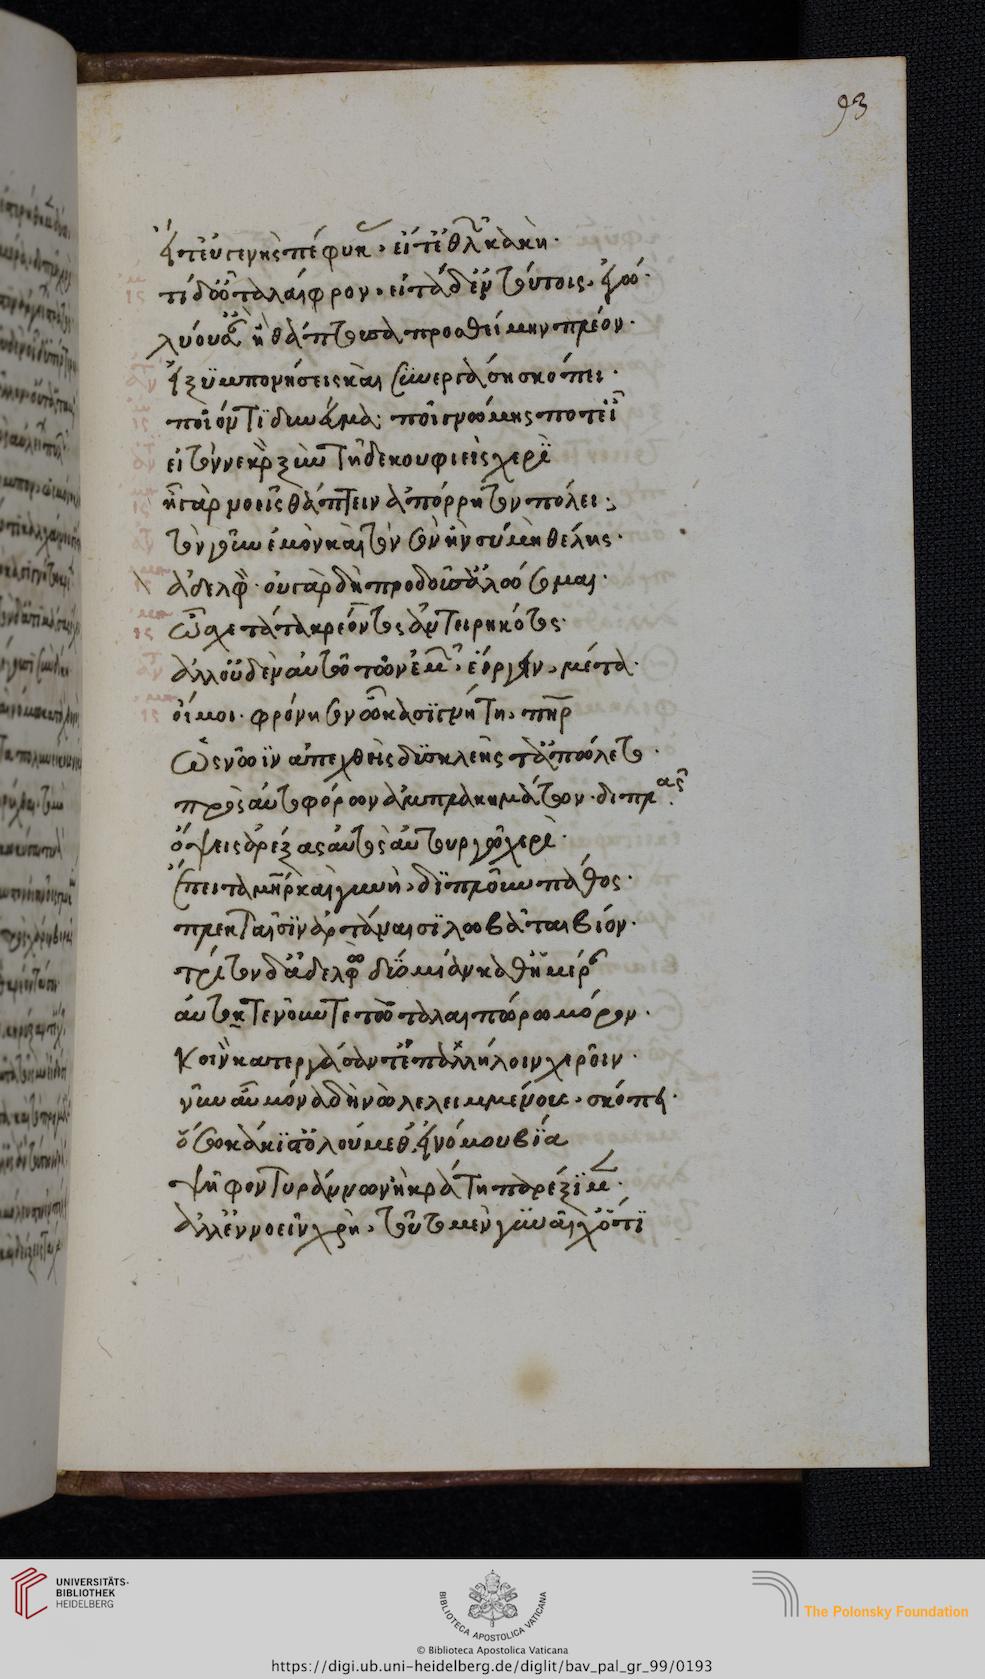 93
εἴτ' εὐγενὴς πέφυκας, εἴτ' ἐσθλῶν κακή.
τί δ' ὦ ταλαῖφρον, εἰ τάδ' ἐν τούτοις, ἐγὼ
λύουσ' ἂν ἢ θάπτουσα προσθείμην πλέον.
εἰ ξυμπονήσεις καὶ ξυνεργάσῃ σκόπει.
ποῖόν τι κινδύνευμα; ποῖ γνώμης ποτ' εἶ
εἰ τὸν νεκρὸν ξὺν τῇδε κουφιεῖς χερί
ἦ γὰρ νοεῖς θάπτειν σφ' ἀπόρρητον πόλει;
τὸν γοῦν ἐμὸν καὶ τὸν σὸν ἢν σὺ μὴ θέλης.
ἀδελφόν. οὐ γὰρ δὴ προδοῦσ' ἁλώσομαι.
ὦ σχετλία κρέοντος ἀντειρηκότος.
ἀλλ' οὐδὲν αὐτῷ τῶν ἐμῶν μ' εἴργειν, μέτα.
οἴμοι. φρόνησον ὦ κασιγνήτη, πατὴρ
ὡς νῷν ἀπεχθὴς δυσκλεής τ' ἀπώλετο.
πρὸς αὐτοφόρων ἀμπλακημάτων. διπλᾶς
ὄψεις ἀράξας αὐτὸς αὐτουργῷ χερί.
ἔπειτα μήτηρ καὶ γυνή, διπλοῦν πάθος.
πλεκταῖσιν ἀρτάναισι λωβᾶται βίον.
τρίτον δ' ἀδελφὼ δύο μίαν καθ' ἡμέραν
αὐτοκτενοῦντε τὼ ταλαιπώρω μόρον.
κοινὸν κατειργάσαντ' ἐπ' ἀλλήλοιν χεροῖν.
νῦν αὖ μόνα δὴ νὼ λελειμμένα, σκόπει.
ὅσῳ κάκιστ' ὀλούμεθ' εἰ νόμου βίᾳ
ψῆφον τυράννων ἢ κράτη παρέξιμεν.
ἀλλ' ἐννοεῖν χρή, τοῦτο μὲν γυναῖχ' ὅτι
UNIVERSITÄTS-
BIBLIOTHEK
HEIDELBERG
BIBLIOTECA APOSTOLICA VATICANA
© Biblioteca Apostolica Vaticana
The Polonsky Foundation
https://digi.ub.uni-heidelberg.de/diglit/bav_pal_gr_99/0193